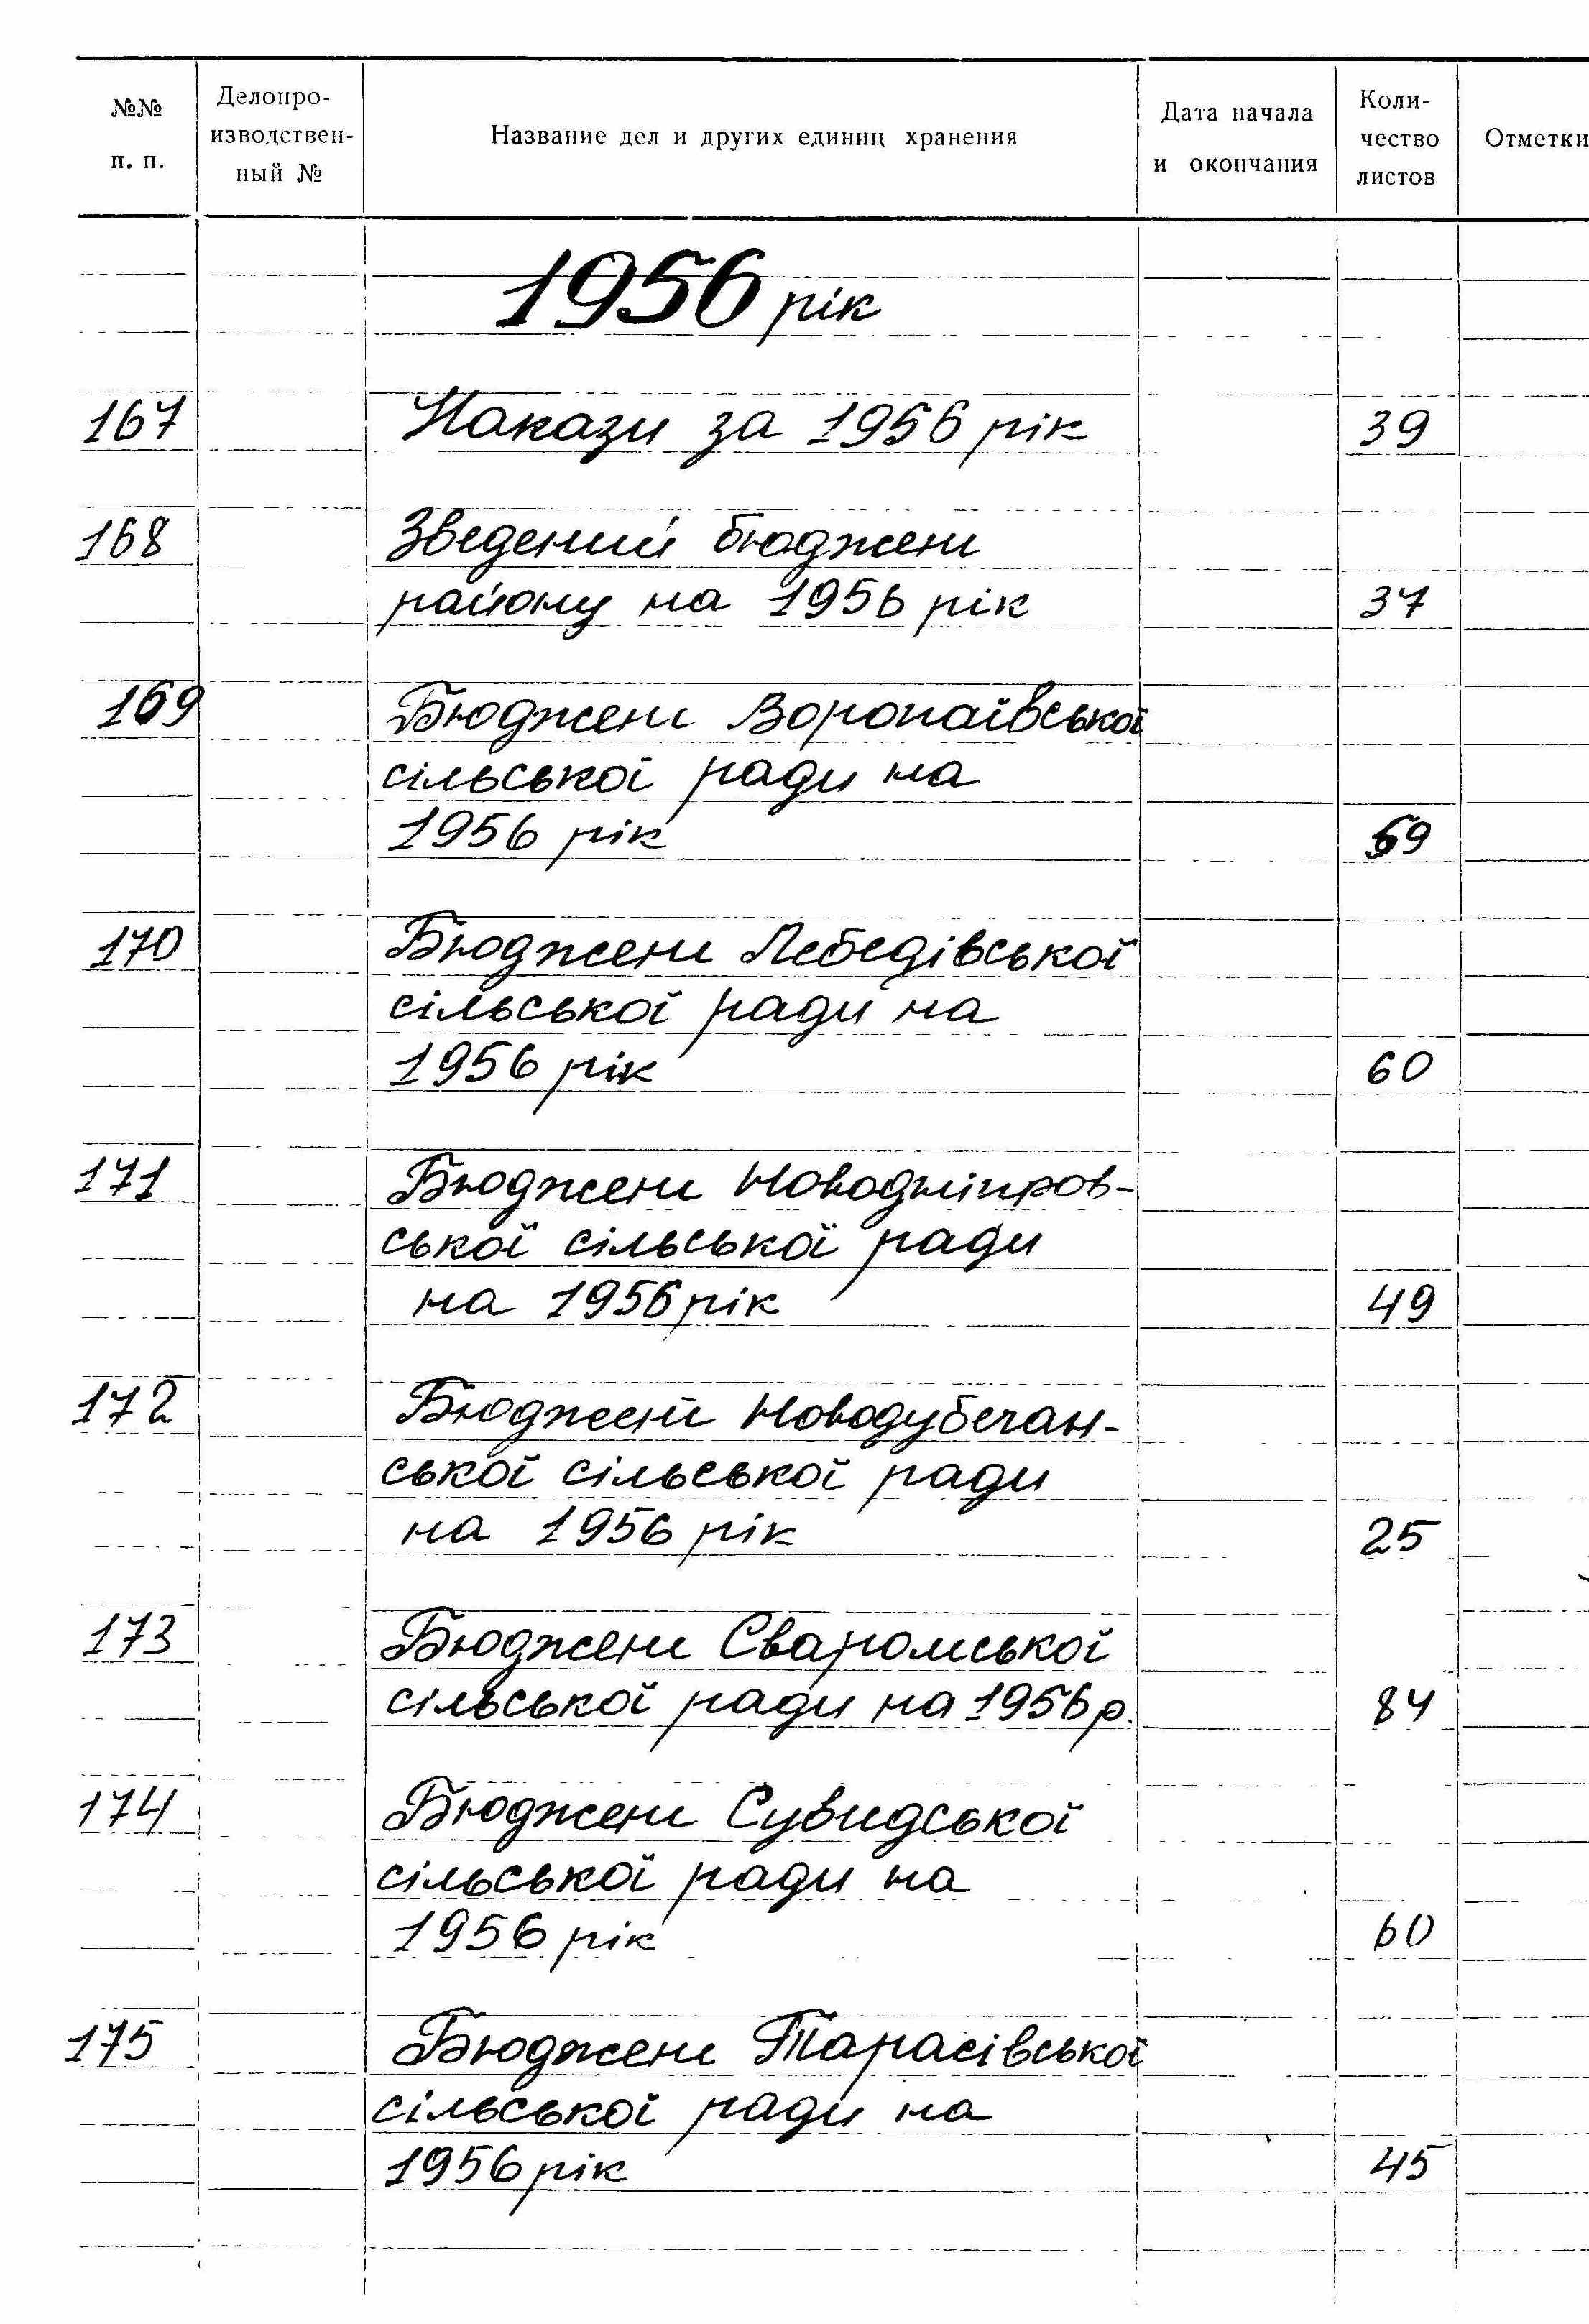 №№ п. п.
Делопро-
изводствен-
ный №
Название дел и других единиц хранения
Дата начала
и окончания
Коли-
чество
листов
Отметки
1956 рік
167 Накази за 1956 рік 39
168 Зведений бюджет
району на 1956 рік 37
169 Бюджет Воропаївської
сільської ради на
1956 рік 59
170 Бюджет Лебедівської
сільської ради на
1956 рік 60
171 Бюджет Новодніпров-
ської сільської ради
на 1956 рік 49
172 Бюджет Новодубечан-
ської сільської ради
на 1956 рік 25
173 Бюджет Сваромської
сільської ради на 1956 р. 84
174 Бюджет Сувидської
сільської ради на
1956 рік 60
175 Бюджет Тарасівської
сільської ради на
1956 рік 45